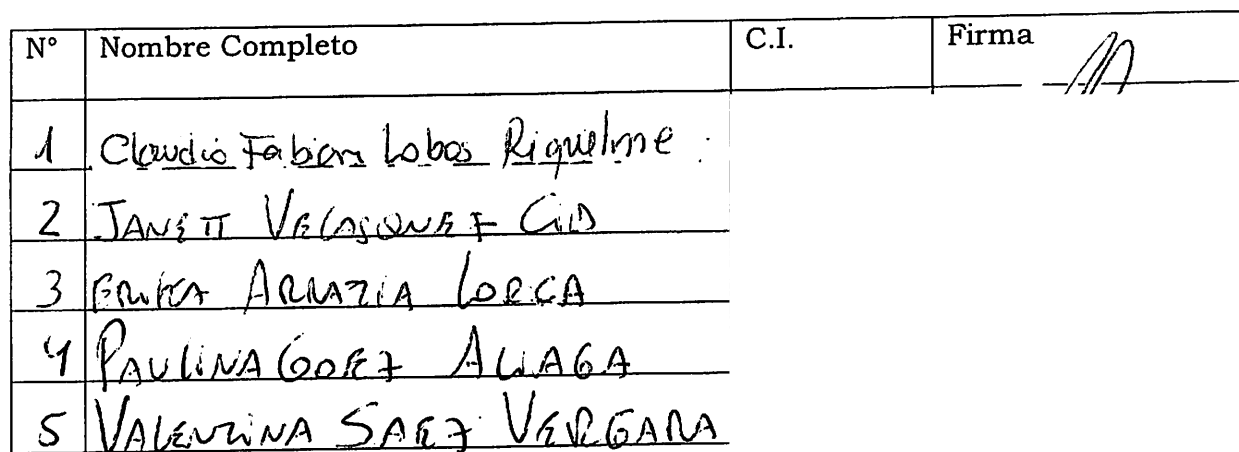 N° Nombre Completo C.I. Firma
1 Claudio Fabian Lobos Riquelme
2 JANETT VELASQUEZ CID
3 ERIKA ARRAZIA LORCA
4 PAULINA GOEZ ALIAGA
5 VALENTINA SAEZ VERGARA